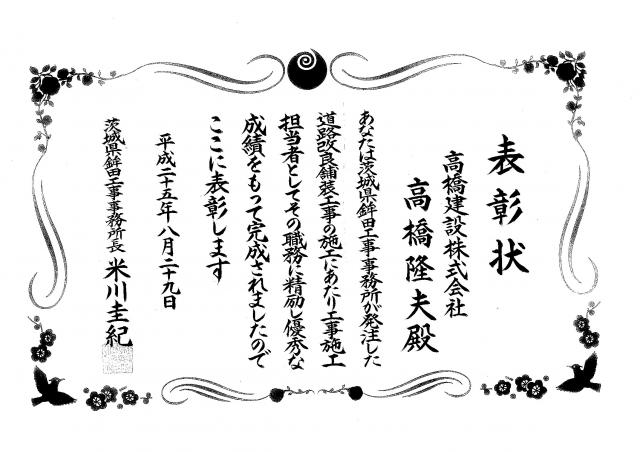 表彰状
高橋建設株式会社
高橋隆夫殿
あなたは茨城県鉾田工事事務所が発注した
道路改良舗装工事の施工にあたり工事施工
担当者としてその職務に精励し優秀な
成績をもって完成されましたので
ここに表彰します
平成二十五年八月二十九日
茨城県鉾田工事事務所長 米川圭紀